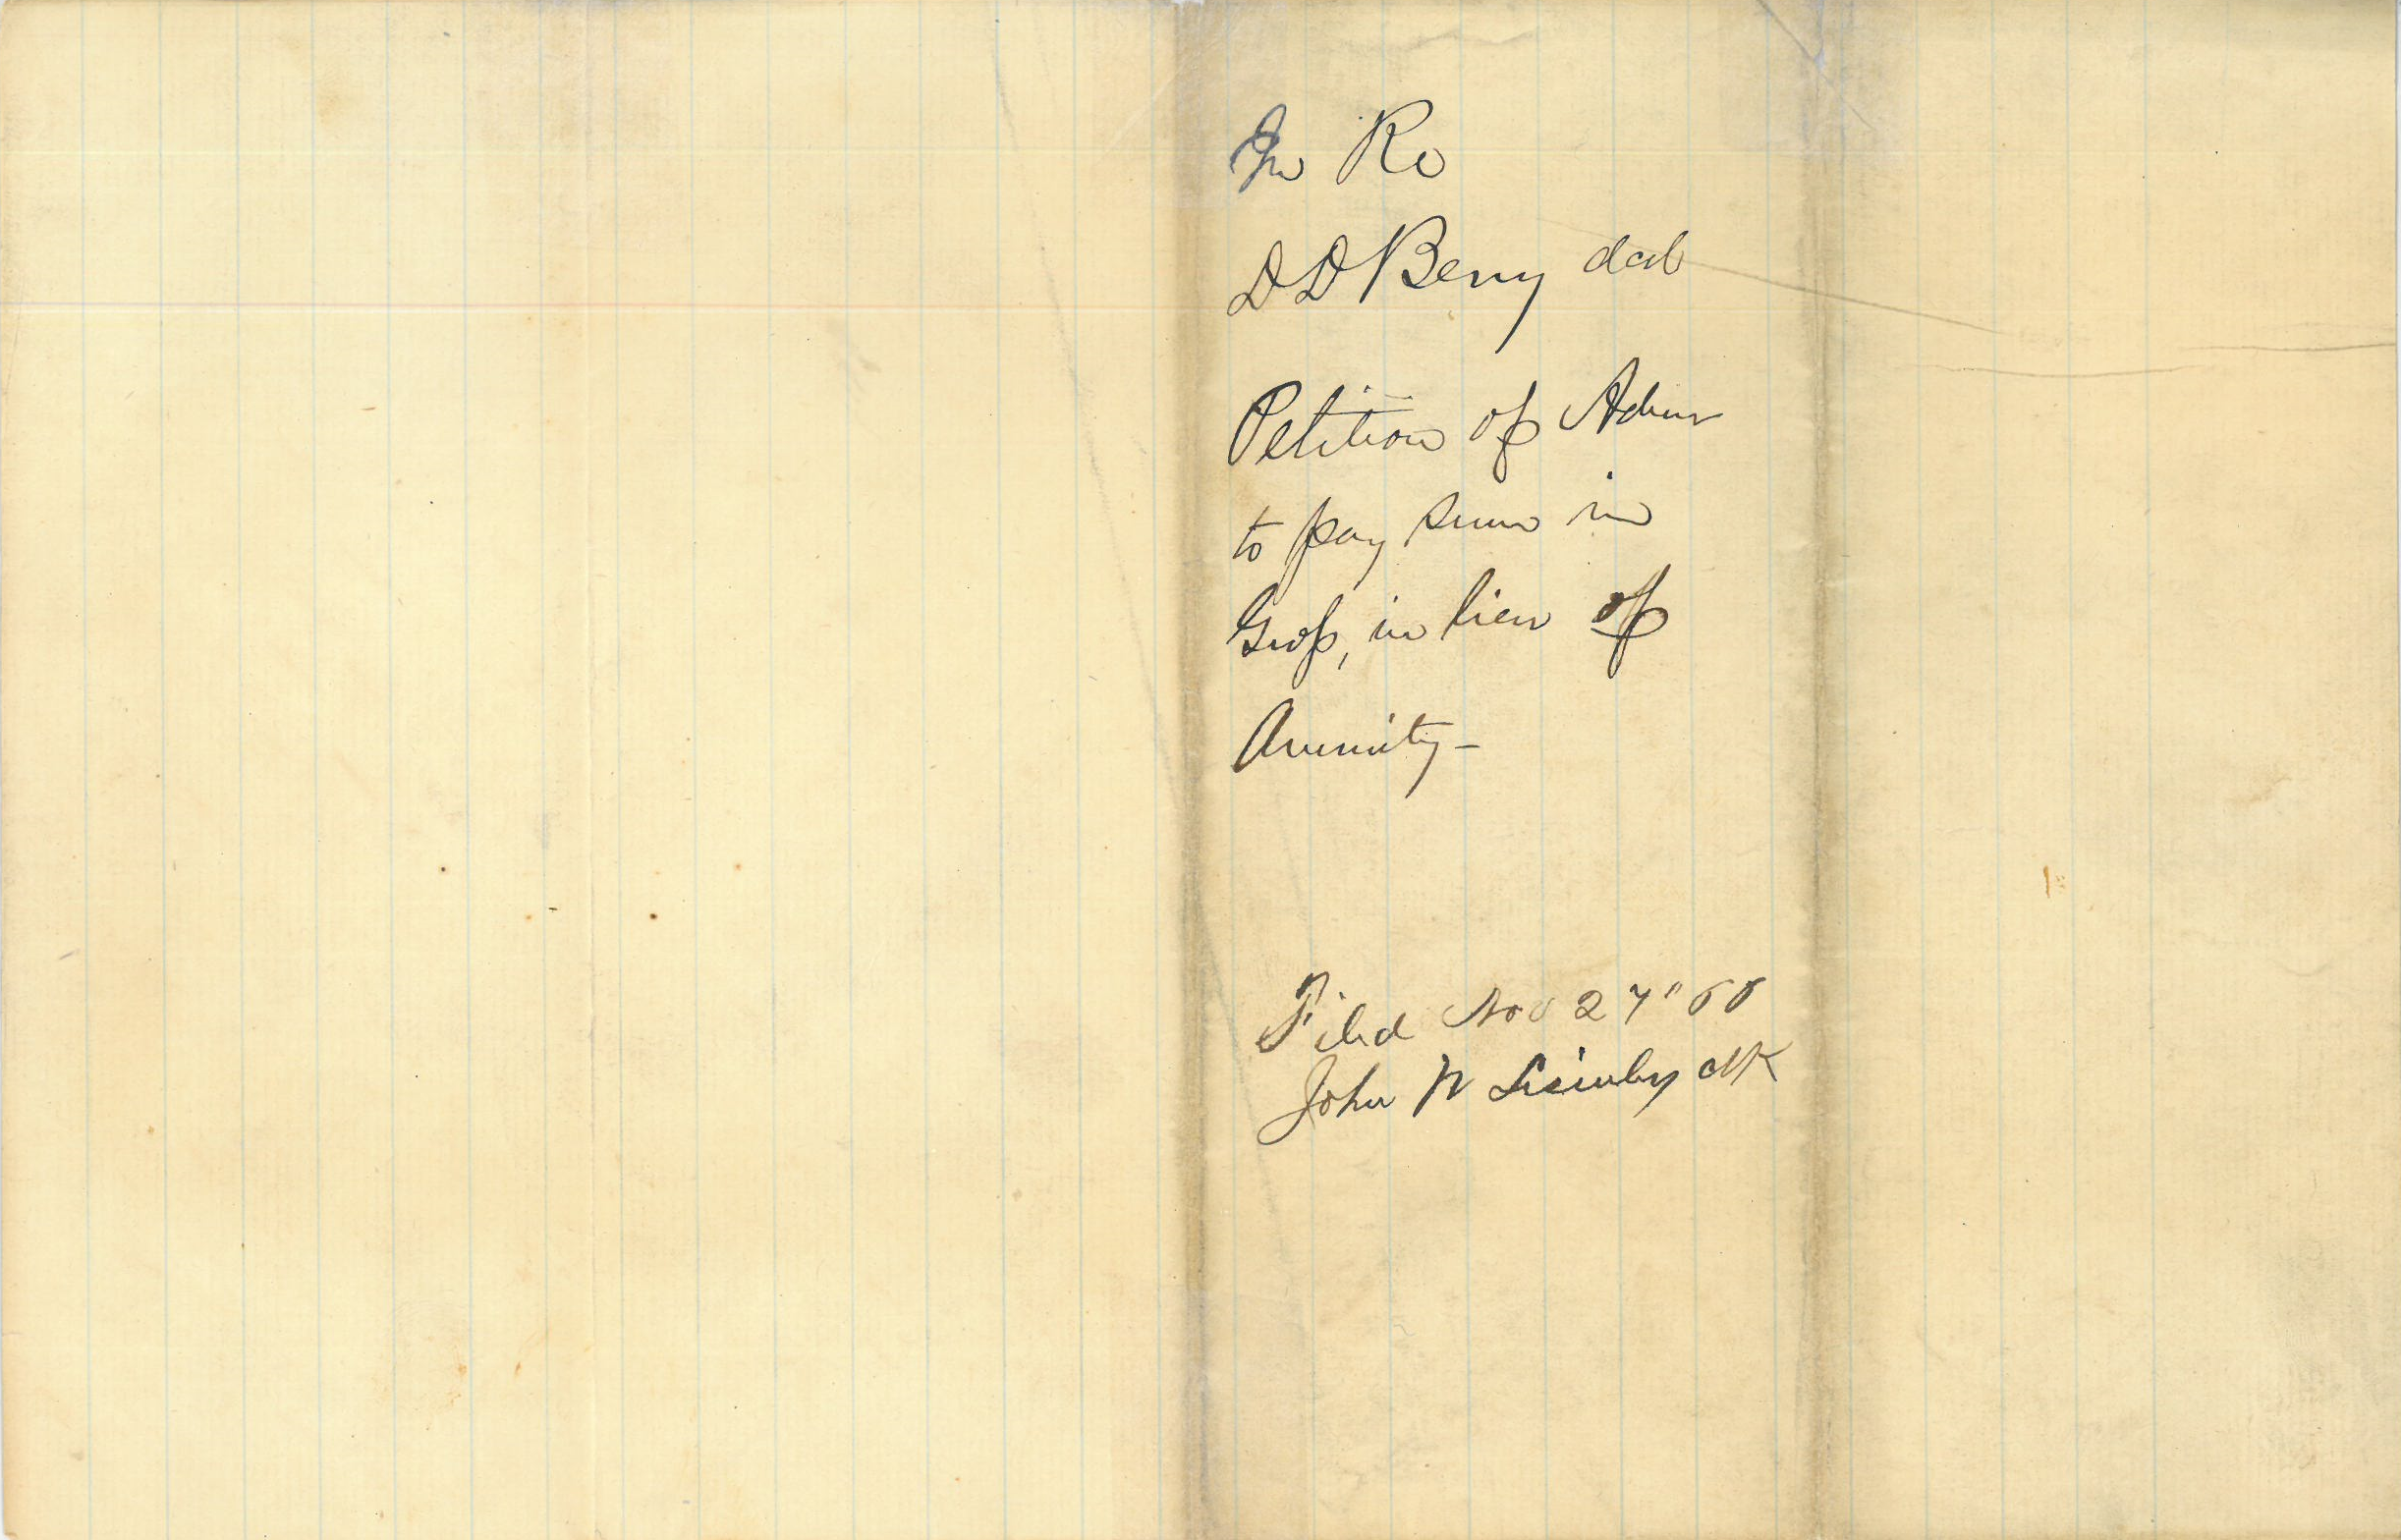 In Re
D D Berry decd
Petition of Admr
to pay sum in
Gross, in lieu of
Annuity -
Filed Nov 27"
John N clk